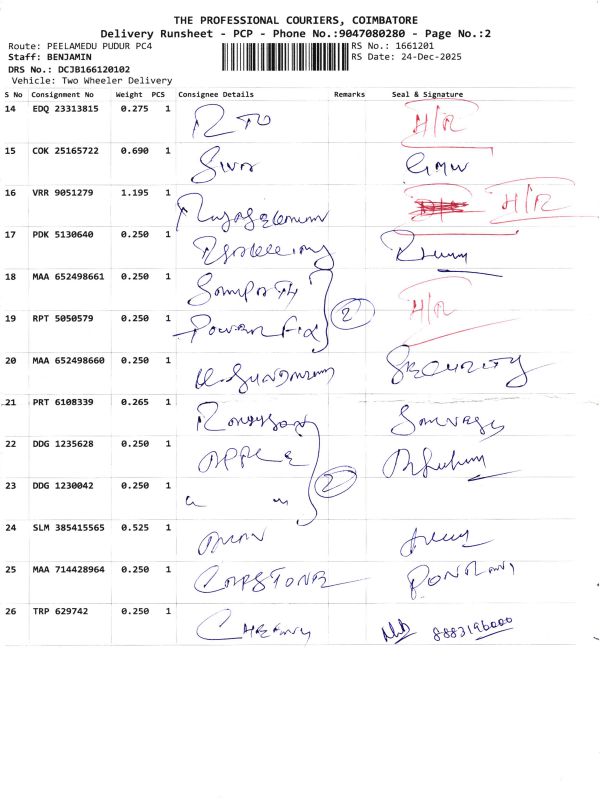 THE PROFESSIONAL COURIERS, COIMBATORE
Delivery Runsheet - PCP - Phone No.:9047080280 - Page No.:2
Route: PEELAMEDU PUDUR PC4 RS No.: 1661201
Staff: BENJAMIN RS Date: 24-Dec-2025
DRS No.: DCJB166120102
Vehicle: Two Wheeler Delivery
S No Consignment No Weight PCS Consignee Details Remarks Seal & Signature
14 EDQ 23313815 0.275 1 RTO H/R
15 COK 25165722 0.690 1 Siva
16 VRR 9051279 1.195 1 H/R
17 PDK 5130640 0.250 1
18 MAA 652498661 0.250 1 H/R
2
19 RPT 5050579 0.250 1 Power Fix
20 MAA 652498660 0.250 1 SECURITY
21 PRT 6108339 0.265 1
22 DDG 1235628 0.250 1 APPLE
2
23 DDG 1230042 0.250 1
24 SLM 385415565 0.525 1
25 MAA 714428964 0.250 1 CAPSTONE
26 TRP 629742 0.250 1 8883196000